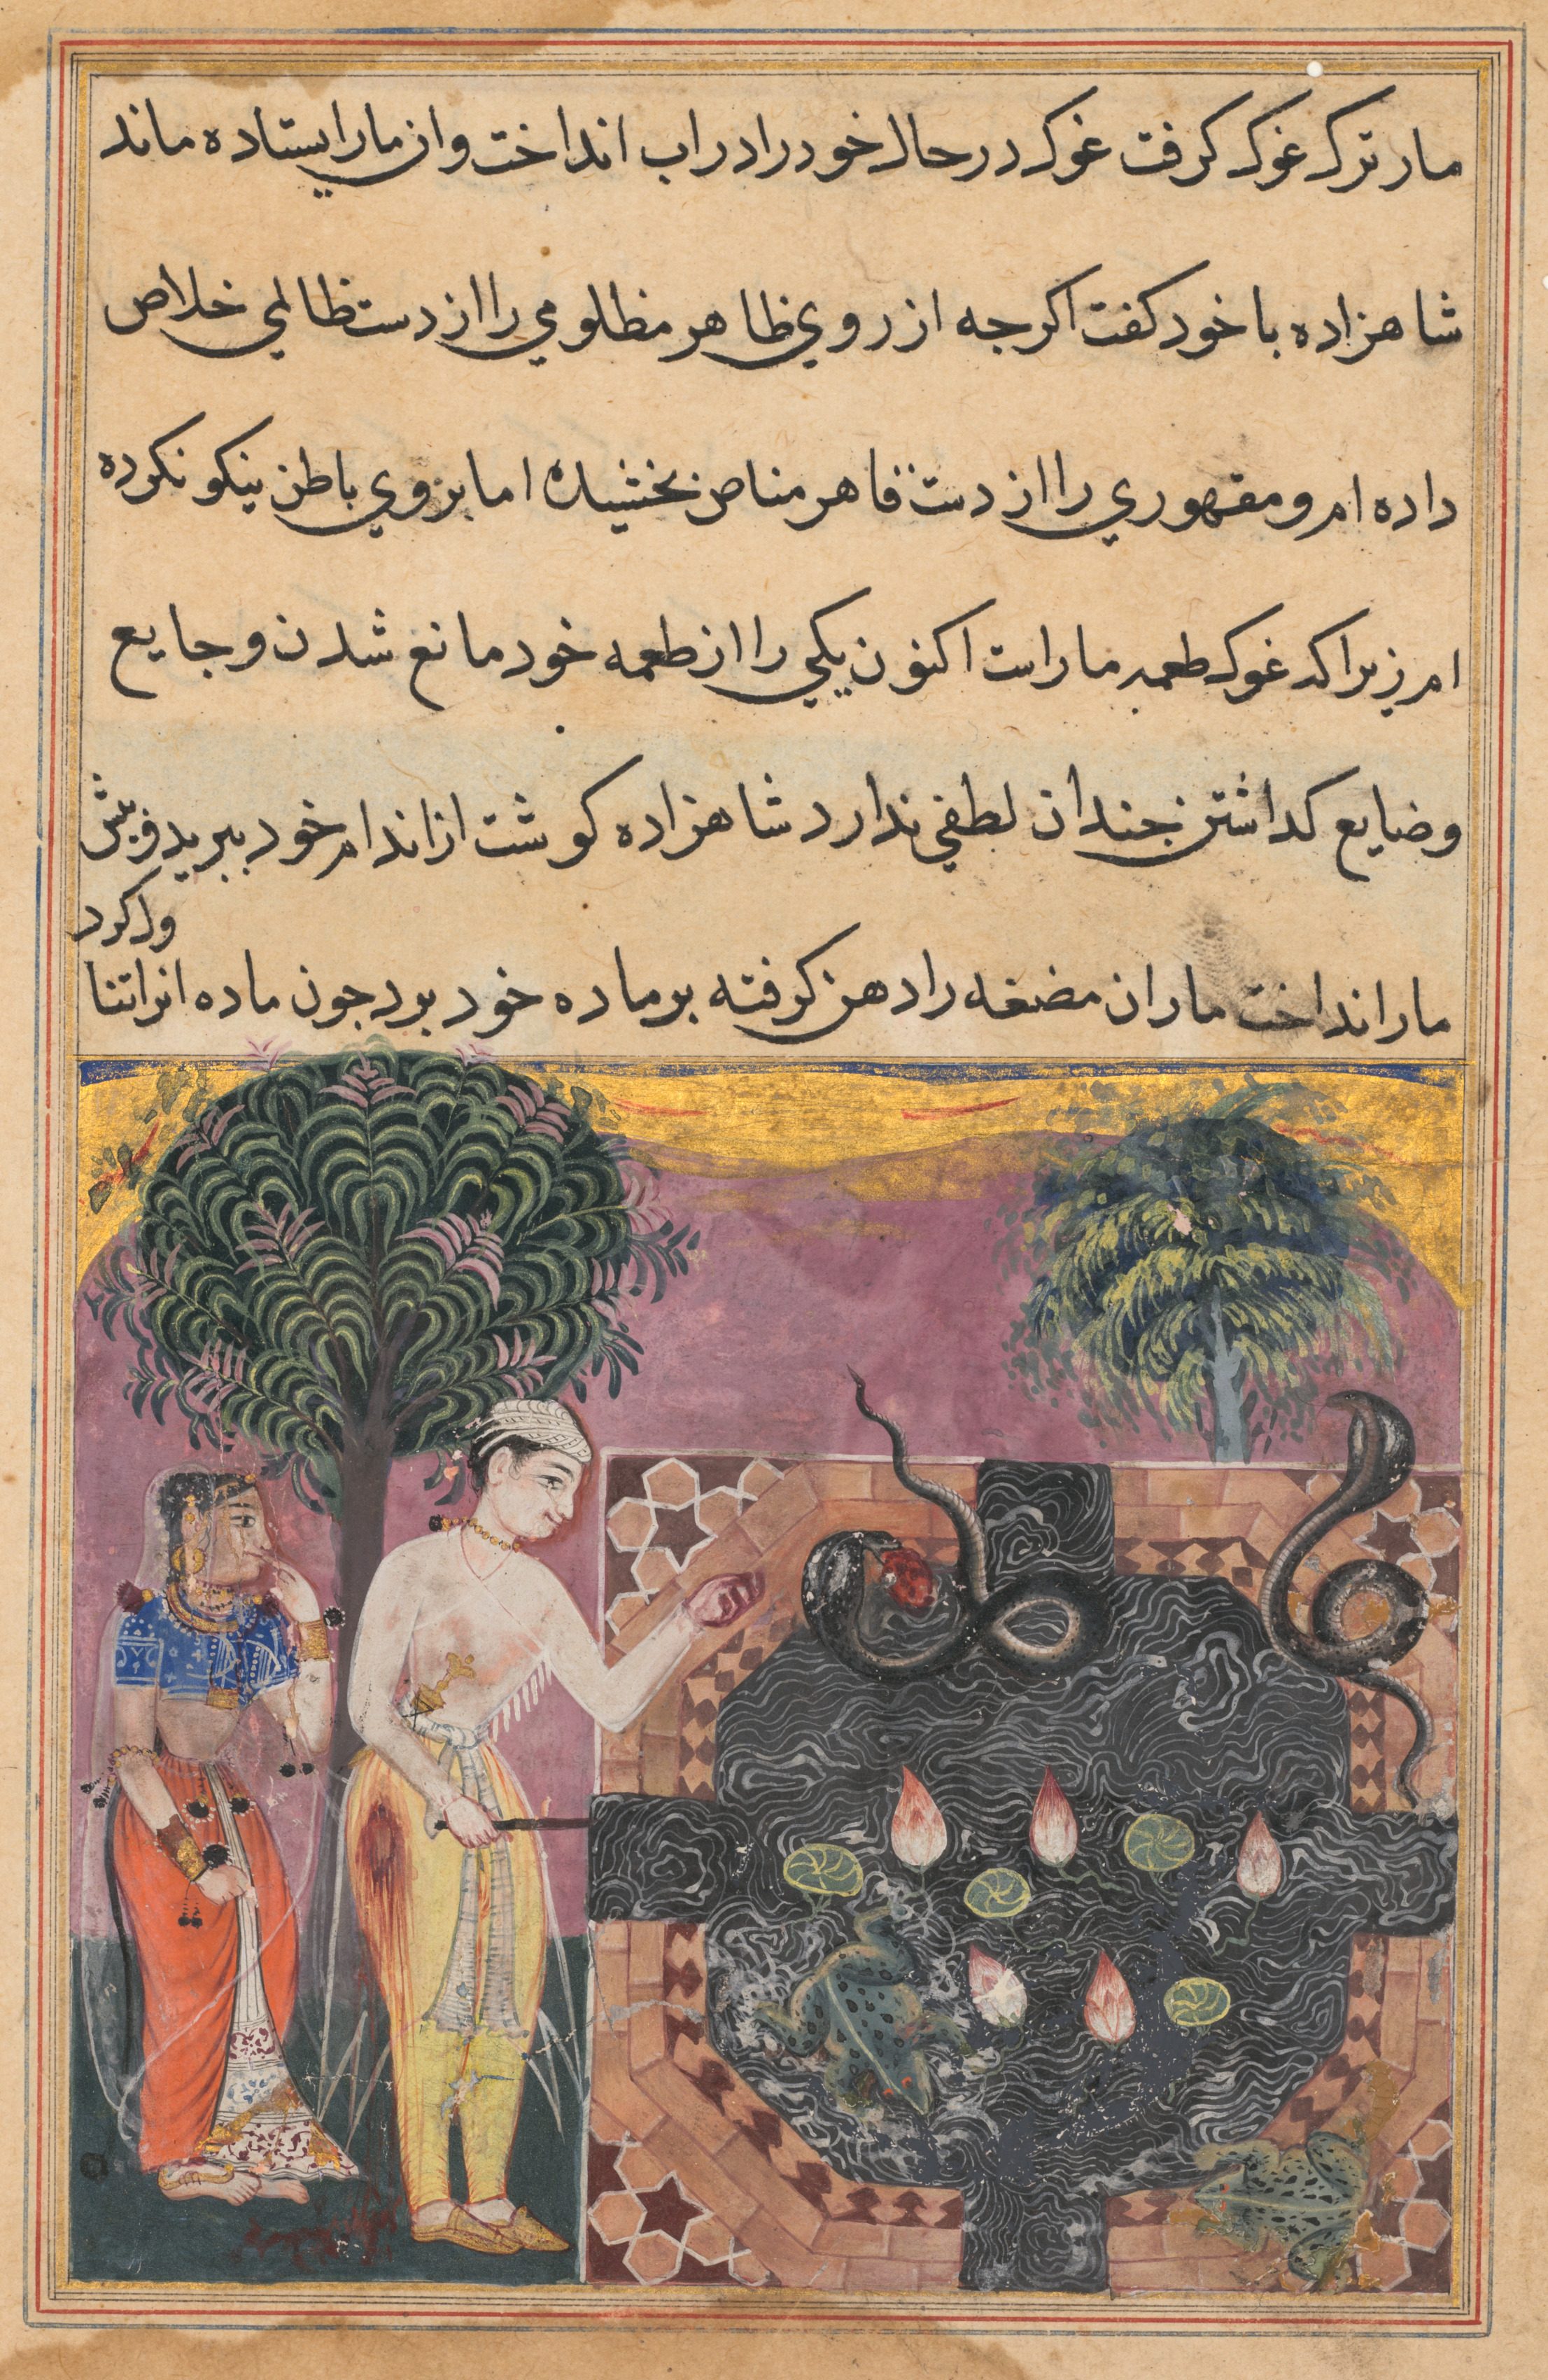 مار ترک غوک کرفت غوک در حال خود را در اب انداخت وان مار ایستاده ماند
شاهزاده با خود کفت اکرجه از روي ظاهر مظلومي را از دست ظالمي خلاص
داده ام و مقهوري را از دست قاهر مناص بخشیده اما بروي باطن نیکو نکرده
ام زیرا که غوک طعمه مار است اکنون یکي را از طعمه خود مانع شدن و جایع
وضایع کداشتن جندان لطفي ندارد شاهزاده کوشت از اندام خود ببرید و پیش
مار انداخت مار ان مضغه را دهن کرفته بر ماده خود برد جون ماده انرا تنا
ول کرد